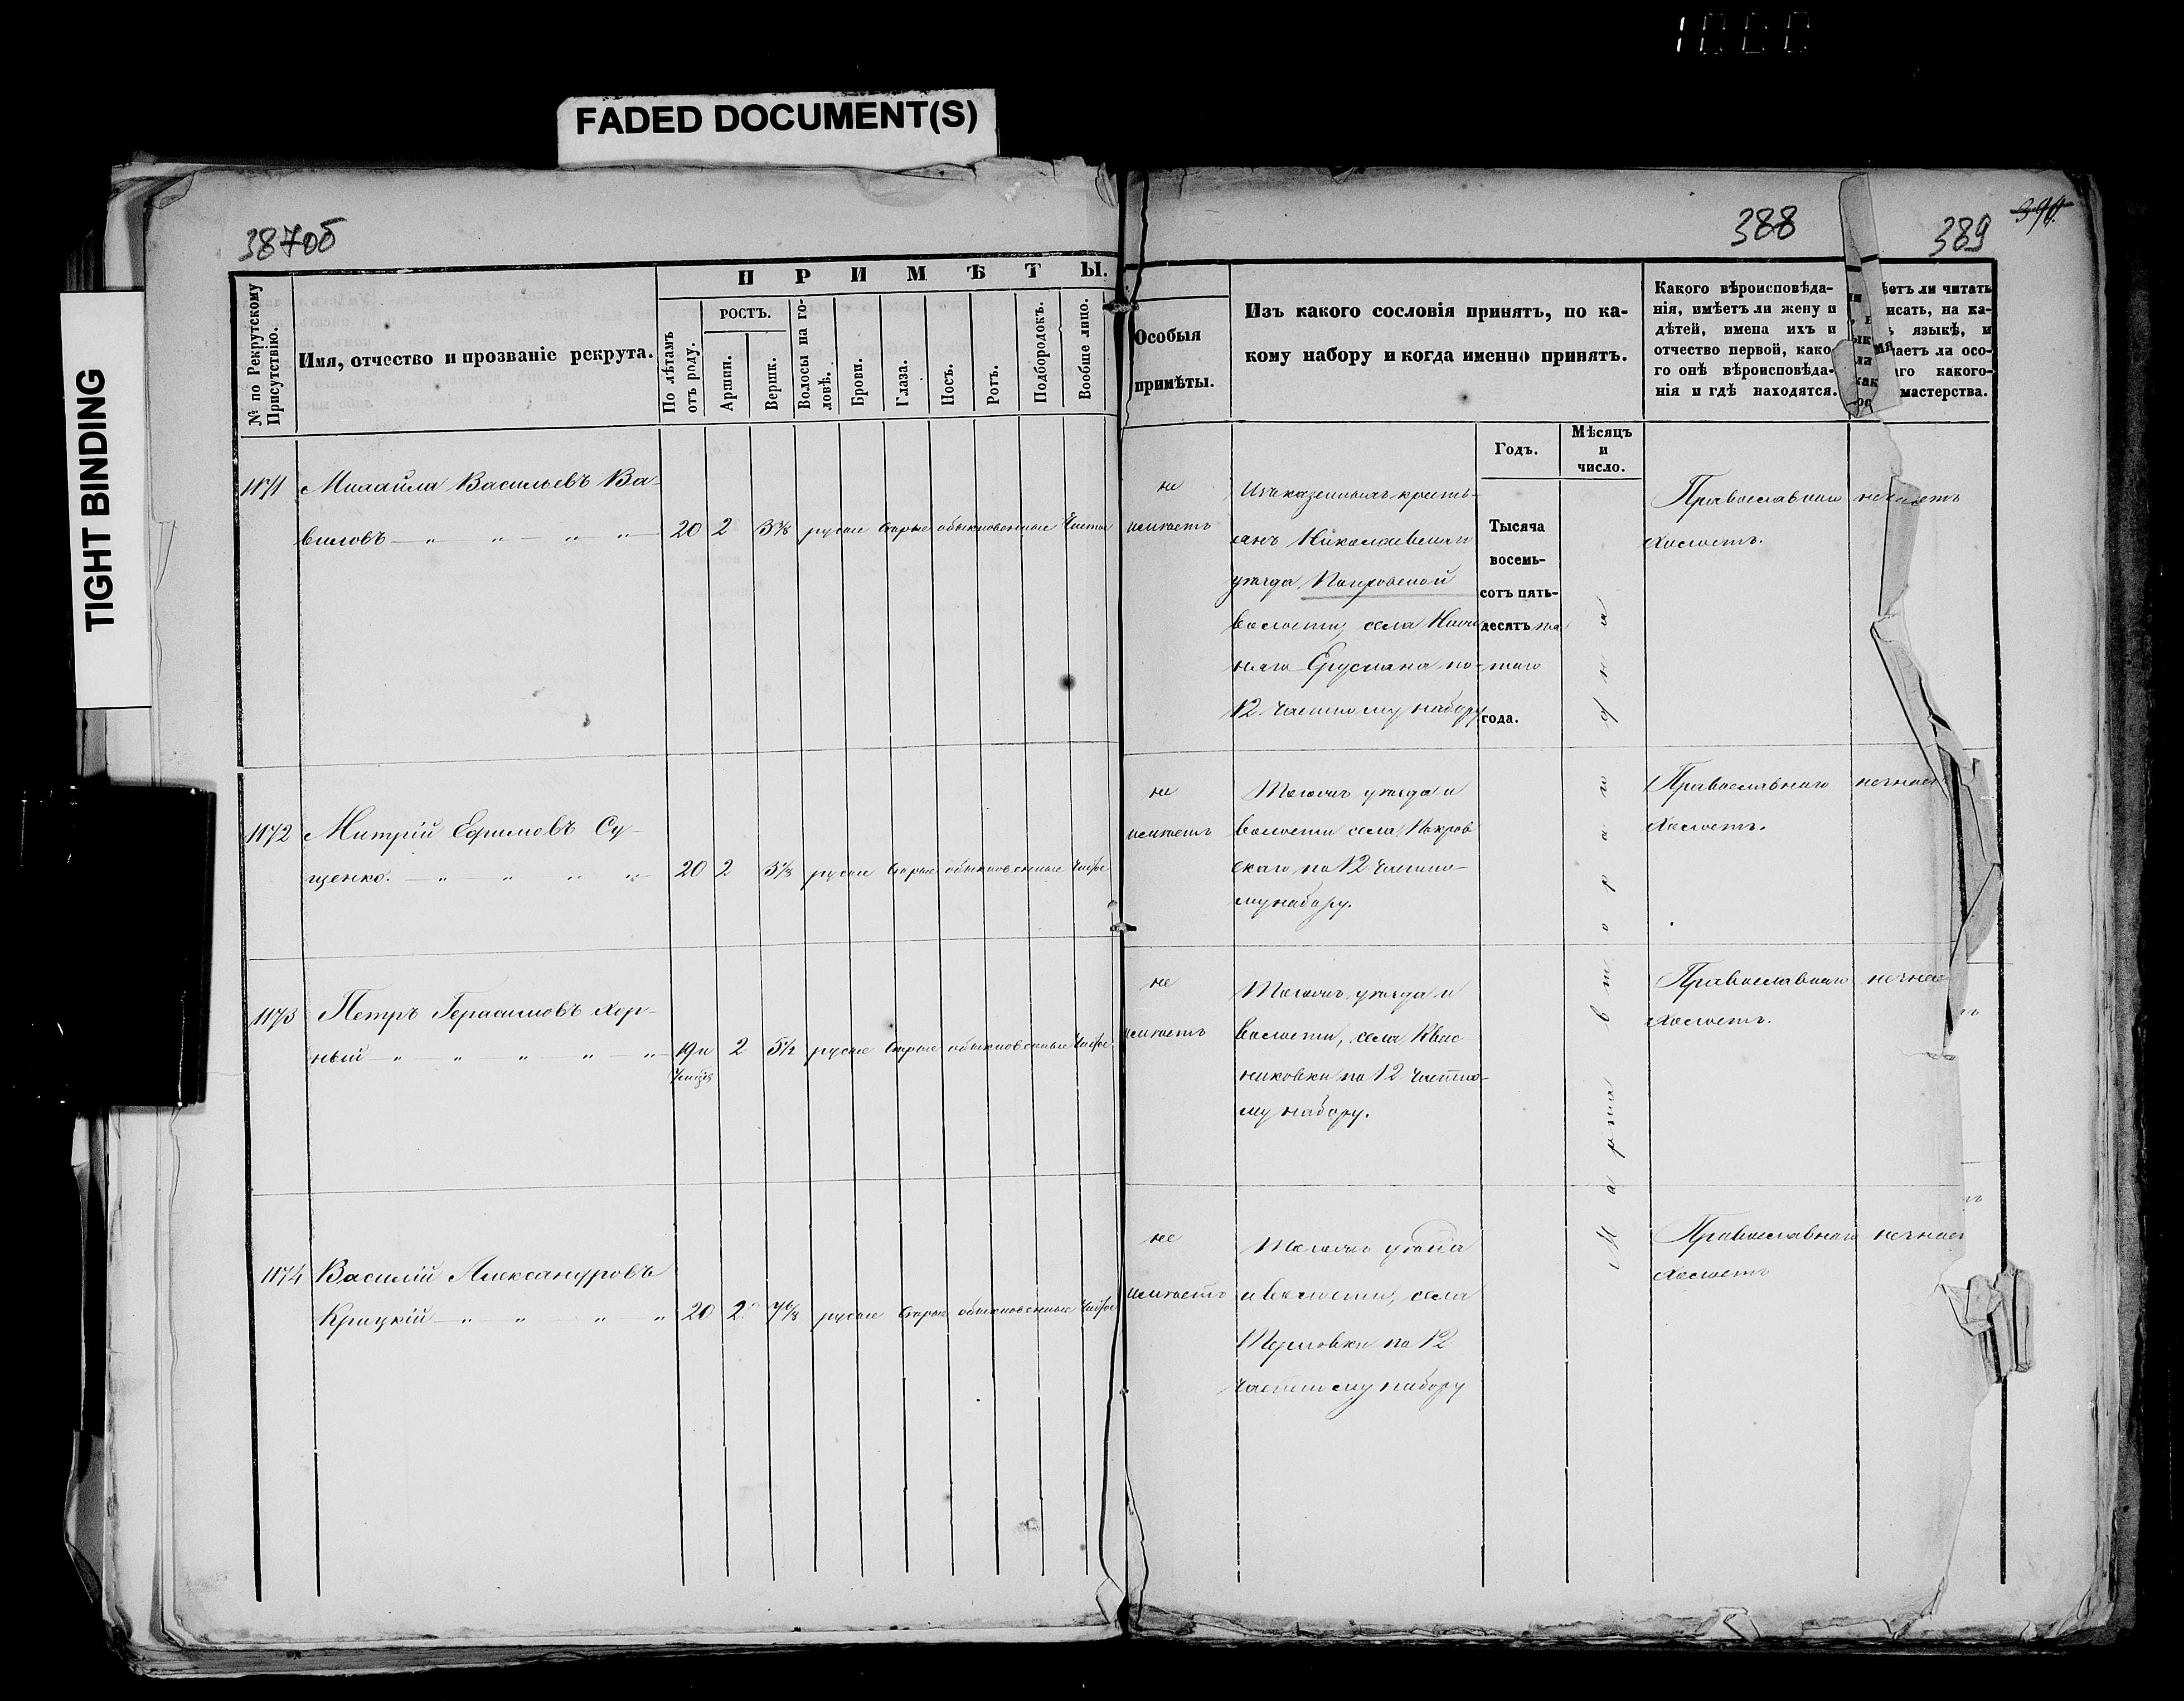 1000
FADED DOCUMENT(S)
TIGHT BINDING
387об
388
389
390.
№ по Рекрутскому Присутствію.
Имя, отчество и прозваніе рекрута.
ПРИМѢТЫ.
По лѣтамъ отъ роду.
РОСТЪ.
Аршин.
Вершк.
Волосы на головѣ.
Брови.
Глаза.
Носъ.
Ротъ.
Подбородокъ.
Вообще лицо.
Особыя
примѣты.
Изъ какого сословія принятъ, по ка-
кому набору и когда именно принятъ.
Годъ.
Мѣсяцъ
и
число.
Какого вѣроисповѣда-
нія, имѣетъ ли жену и
дѣтей, имена ихъ и
отчество первой, како-
го онѣ вѣроисповѣда-
нія и гдѣ находятся.
ѣетъ ли читать
исать, на ка-
ъ языкѣ, и
аетъ ли осо-
аго какого-
мастерства.
1171 Михайла Васильевъ Ва-
виловъ — " — " — " — " 20 2 3⅜ русые Сѣрые обыкновенные Чистое
не
имѣетъ
Изъ казенныхъ кресть-
янъ Николаевскаго
уѣзда, Покровской
волости, села Ниж-
няго Еруслана по
12. Частному набору
Тысяча
восемь-
сотъ пять-
десятъ пя-
таго
года.
Марта втораго дня
Православнаго
Холостъ.
незнаетъ
1172 Митрій Ефимовъ Су-
щенко. — " " " " 20 2 3⅛ русые Сѣрые обыкновенные Чистое
не
имѣетъ
Тогожъ уѣзда и
волости села Покров
скаго по 12 Частно-
му набору.
Православнаго
Холостъ.
незнает
1173 Петръ Герасимовъ Хор-
ный — " " " " " 19 и 2 5½ русые Сѣрые обыкновенные Чистое
не
имѣетъ
Тогожъ уѣзда и
волости, села Квас
никовки по 12 Частно-
му набору.
Православнаго
Холостъ.
незнае
1174 Василій Александровъ
Крицкій — " " " " 20 2 7⅛ русые Сѣрые обыкновенные Чистое
не
имѣетъ
Тогожъ уѣзда
и волости, села
Терновки по 12
Частному набору
Православнаго
Холостъ
незнает